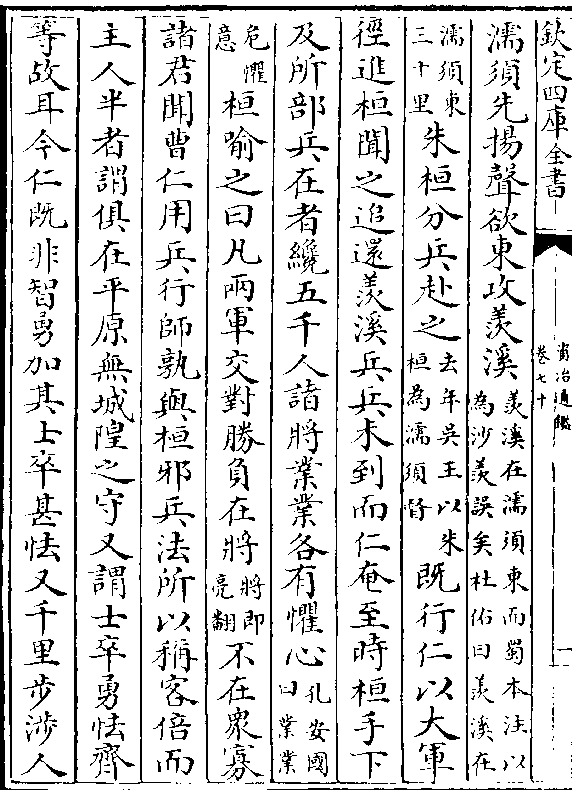 欽定四庫全書
資治通鑑
卷七十
一
濡須先揚聲欲東攻羨溪羨溪在濡須東而蜀本注以為沙羨誤矣杜佑曰羨溪在
濡須東三十里朱桓分兵赴之去年吳王以朱桓為濡須督既行仁以大軍
徑進桓聞之追還羨溪兵兵未到而仁奄至時桓手下
及所部兵在者纔五千人諸將業業各有懼心孔安國曰業業
危懼意桓喻之曰凡兩軍交對勝負在將將即亮翻不在衆寡
諸君聞曹仁用兵行師孰與桓邪兵法所以稱客倍而
主人半者謂俱在平原無城隍之守又謂士卒勇怯齊
等故耳今仁既非智勇加其士卒甚怯又千里步涉人